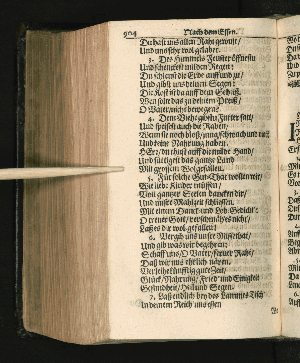 904 Nach dem Essen.
Du hast uns allen Raht gewust/
Und uns sehr wol gelabet.
3. Des Himmels Fenster öffnestu
Und schenckest milden Regen:
Du schleust die Erde auff und zu/
Und gibst uns deinen Segen:
Die Kost ist da auff dein Geheiß/
Wen solte das zu deinem Preiß/
O Vater/nicht bewegen?
4. Dem Viehe gibstu Futter satt/
Und speisest auch die Raben/
Wenn sie noch bloß
und deine Nahrung haben.
HErr/du thust auff die milde Hand/
Und sättigst das gantze Land
Mit grossem Wolgefallen.
5. Für solche Gut-That wollen wir/
Wie liebe Kinder müssen/
Von gantzer Seelen dancken dir/
Und unsre Mahlzeit schliessen
Mit einem Danck- und Lob-Gedicht:
O treuer Gott/verschmäh es nicht/
Laß es dir wol gefallen!
6. Vergib uns unsre Missethat/
Und gib was wir begehren:
Schaff uns/O Vater/ferner Raht/
Daß wir uns ehrlich nähren.
Verleihe künfftig gute Zeit/
Glück/Nahrung/Fried und Einigkeit
Gesundheit/Heil und Segen.
7. Laß endlich bey des Lammes Tisch
In deinem Reich uns essen